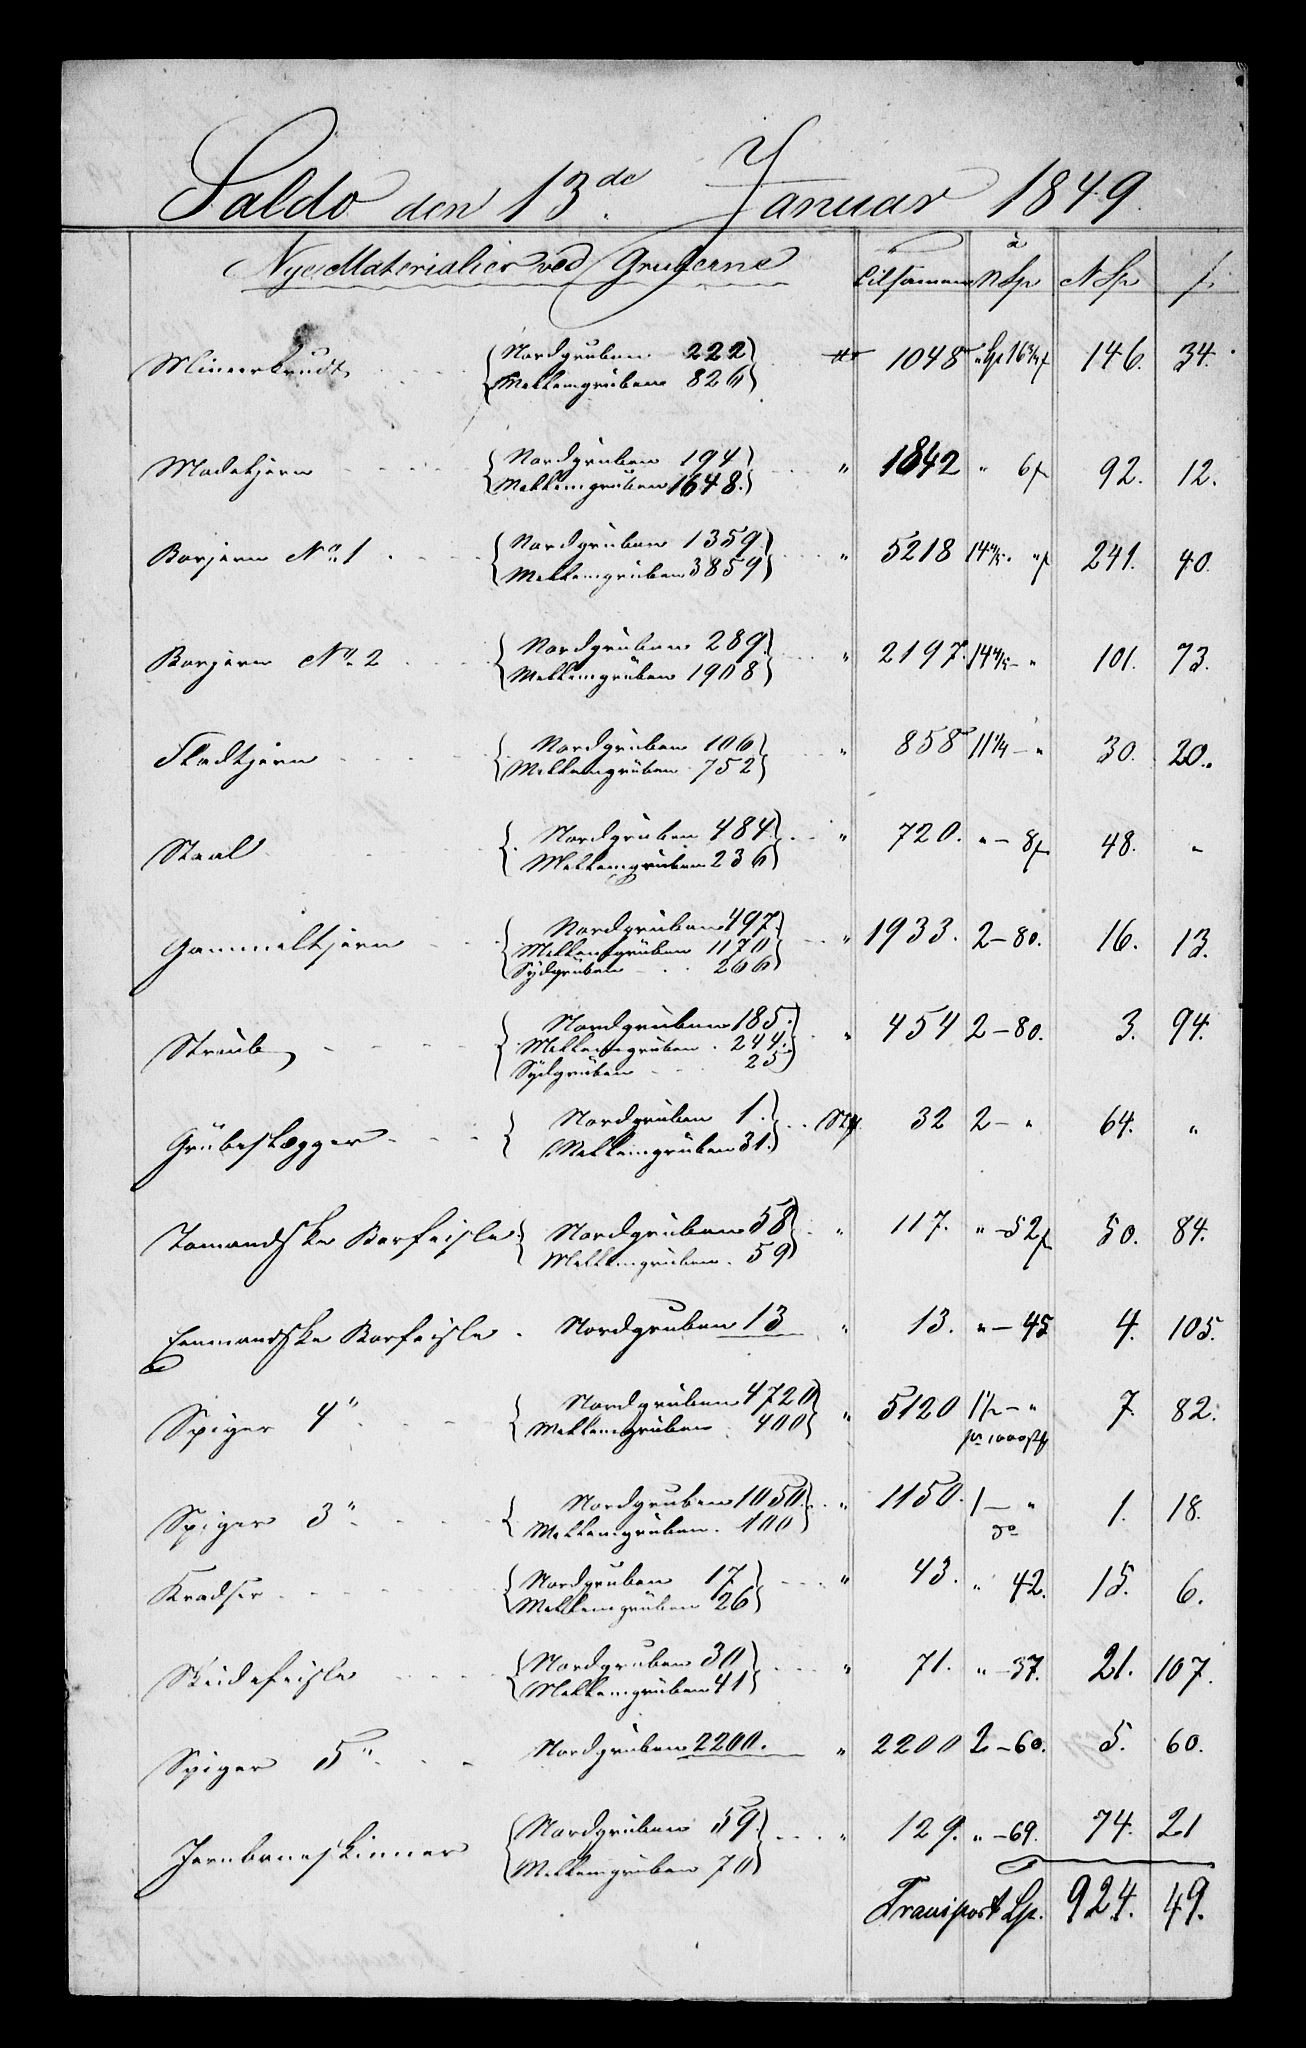 Saldo den 13de Januar 1849.
Nye Materialier ved Gruberne Tilsammen à N Sp N Sp ß
Minerkrudt { Nordgruben 222 ℔ 1048 " Sp 16 3/4 ß 146. 34.
Mellemgruben 826 }
Madetjern { Nordgruben 194 " 1842 " 6 ß 92. 12.
Mellemgruben 1648. }
Borjern No 1 { Nordgruben 1359. " 5218 " ß 241. 40.
Mellemgruben 3859 }
Borjern No 2 { Nordgruben 289. " 2197. – " 101. 73.
Mellemgruben 1908 }
Fladtjern { Nordgruben 106 " 858 11 1/4 – " 30. 20.
Mellemgruben 752 }
Staal { Nordgruben 484. " 720. " – 8 ß 48. "
Mellemgruben 236 }
Gammeltjern { Nordgruben 497. " 1933. 2 – 80. 16. 13.
Mellemgruben 1170
Sydgruben 266 }
Straub { Nordgruben 185. " 454 2 – 80. 3. 94.
Mellemgruben 244.
Sydgruben 25 }
Grubeslægger { Nordgruben 1. Stk. 32 2 – " 64. "
Mellemgruben 31. }
Tomandske Borfeisle { Nordgruben 58 " 117. " – 52 ß 50. 84.
Mellemgruben 59 }
Eenmandske Borfeisle Nordgruben 13 " 13. " – 45 4. 105.
Spiger 4" { Nordgruben 4720 " 5120 1 1/2 – " 7. 82.
Mellemgruben 400 } pr 1000 Stk
Spiger 3" { Nordgruben 1050. " 1150. 1 – " 1. 18.
Mellemgruben 100 } do
Kradser { Nordgruben 17 " 43. " 42. 15. 6.
Mellemgruben 26 }
Skeidefeisle { Nordgruben 30 " 71. " – 37. 21. 107.
Mellemgruben 41 }
Spiger 5" Nordgruben 2200. " 2200 2 – 60. 5. 60.
Jernbaneskinner { Nordgruben 59. " 129. " – 69. 74. 21
Mellemgruben 70 }
Transport Sp. 924. 49.